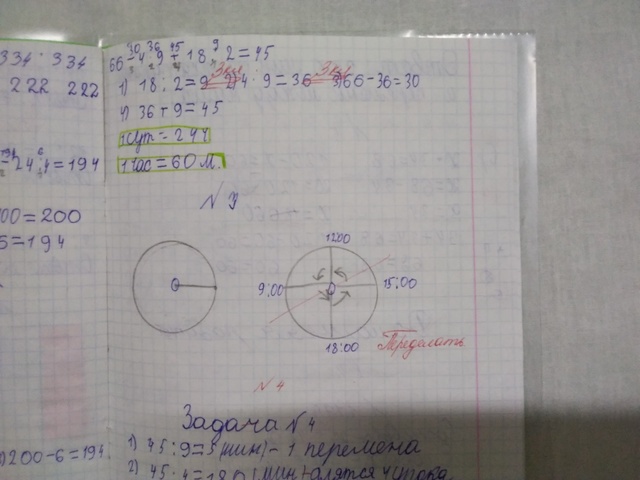 334 · 334
222 222
-24:4=194
00=200
6=194
200-6=194
30 36 45 9
66-4·9+18:2=45
1) 18:2=9 2)4·9=36 3)66-36=30
4) 36+9=45
1 сут = 24ч
1 час = 60 м.
N 3
12:00
9:00
15:00
18:00
Переделать
N 4
Задача N 4
1) 45:9=5(мин) - 1 перемена
2) 45·4=180(мин) -